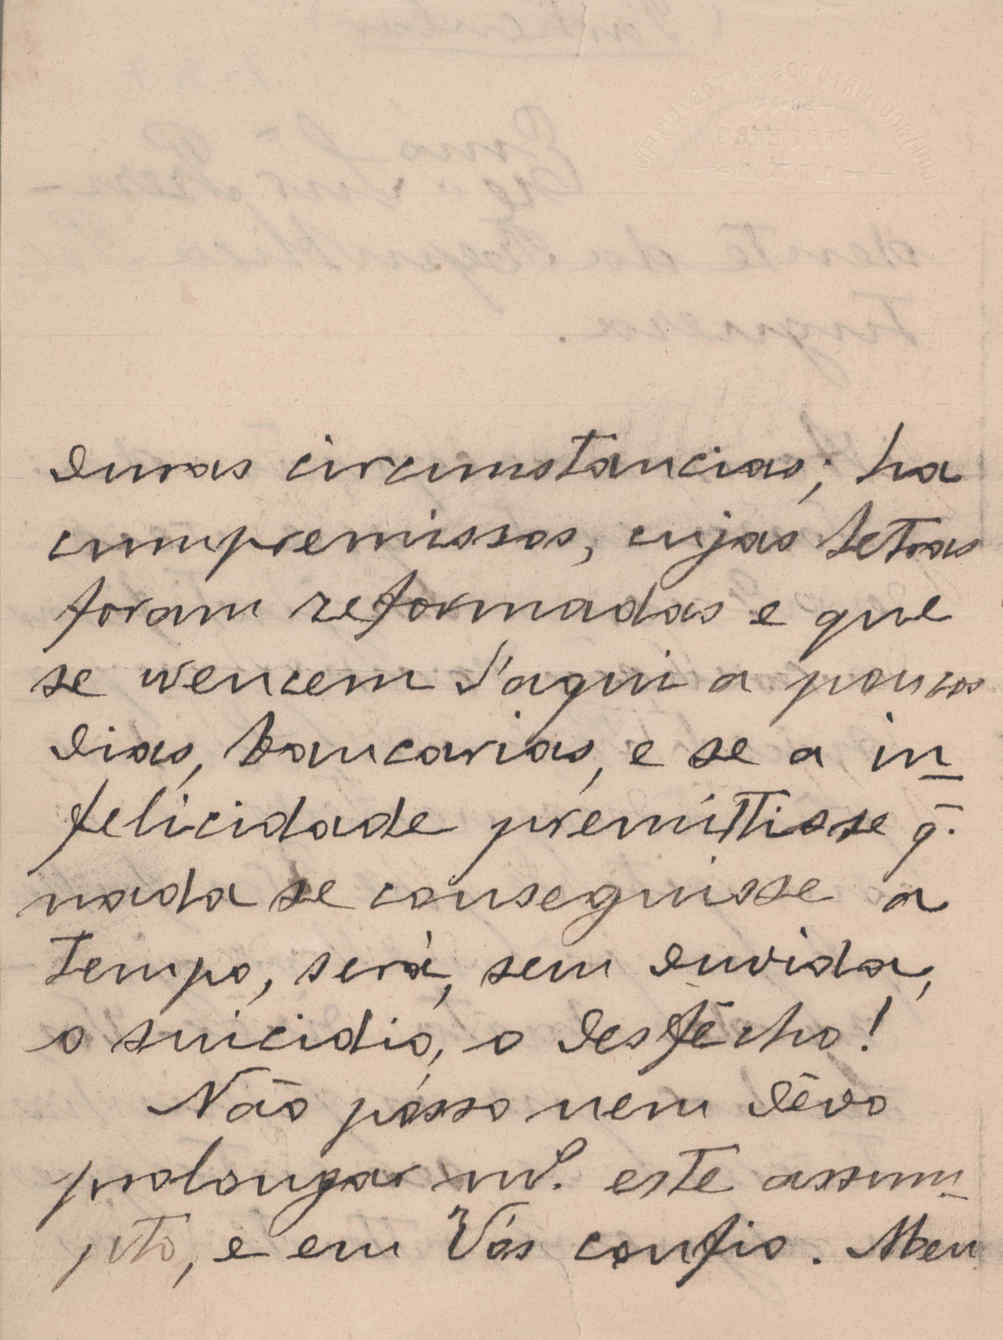 duras circumstancias; ha
compremissos, cujas letras
foram reformadas e que
se vencem d'aqui a poucos
dias, bancarias, e se a in
felicidade premittisse q.
nada se conseguisse a
tempo, será, sem duvida,
o suicidio, o desfêcho!
Não pósso nem dêvo
prolongar este assum
pto, e em Vós confio. Meu